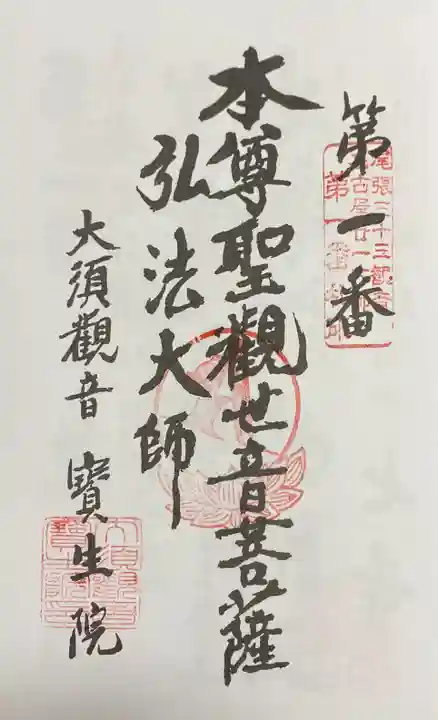 第一番
尾張三十三観音
名古屋廿一
第一番
本尊聖觀世音菩薩
弘法大師
大須觀音 寶生院